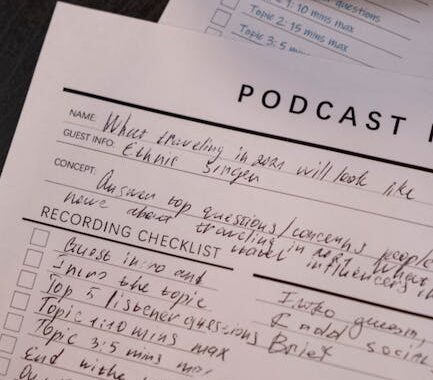 questions
Topic 1: 10 mins max
Topic 2: 15 mins max
Topic 3: 5 mins
PODCAST
NAME: What traveling in 2021 will look like
GUEST INFO: Ethnic Singer
CONCEPT:
Answer top questions/concerns people
about traveling in
travel influencers
RECORDING CHECKLIST
Guest intro and
Intro the topic
Top 5 listener questions
Topic 1:10 mins max
Topic 3:5 mins max
End with
Intro guests,
add social
Brief